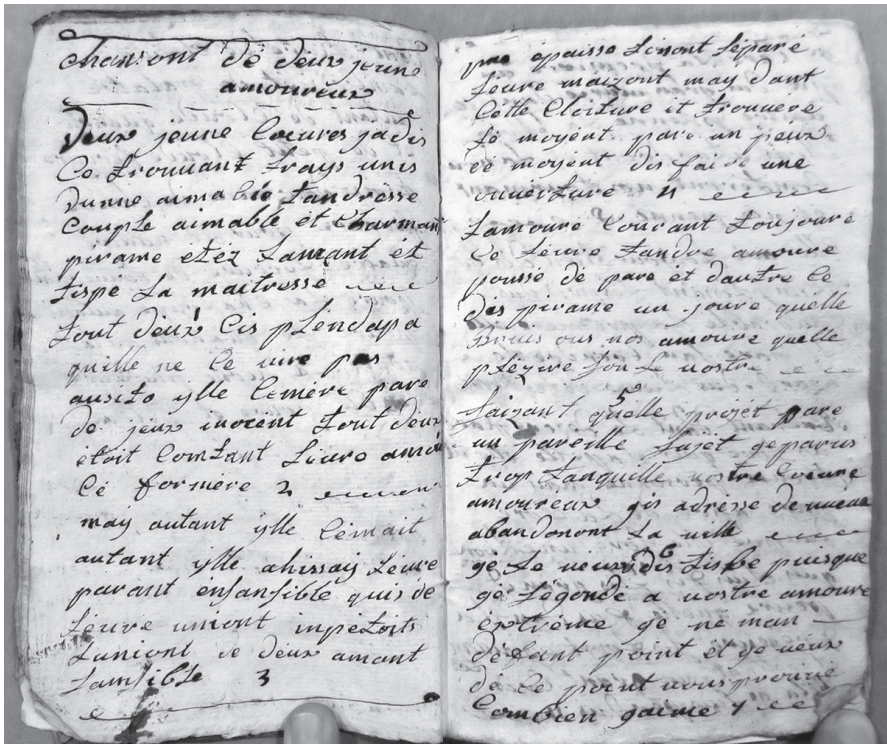 chansont de deux jeune
amoureux
Deux jeune Coeures jadis
Ce trouvant trays unis
dunne aimable tandresse
Couple aimable et Charman
pirame etéz Lamant et
tispé La maitresse
tout deux Cis plendapa
quille ne Ce vire pas
ausito ylle Cemère pare
de jeux inocent tout deux
étoit Comtant Leure amou
Cé formére 2
may autant ylle Cémait
autant ylle ahissay Leure
parant ensansible quis de
Leure uniont inpétoits
Luniont de deux amant
Sansible 3
épaisse Sinont séparé
Leure maizont may dant
Cette Cloiture it trouvere
Le moyent pare un pieux
de moyent dis faire une
ouverture 4
Lamoure Courant toujoure
Ce Leure tandre amoure
pousse de pare et dautre Ce
dis pirame un joure quelle
nos amoure quelle
plézire son Le vostre
5
faizant quelle projét pare
un pareille Sujet ge parus
trop tanquille vostre Coeure
amouréux gis adrésse
abandonont La ville
6
ge Le veux dis tisbe puisque
ge Légonde a vostre amoure
extrème ge ne man
défant point et ge veux
dé Ce point vous prouvé
Combien gaime 7